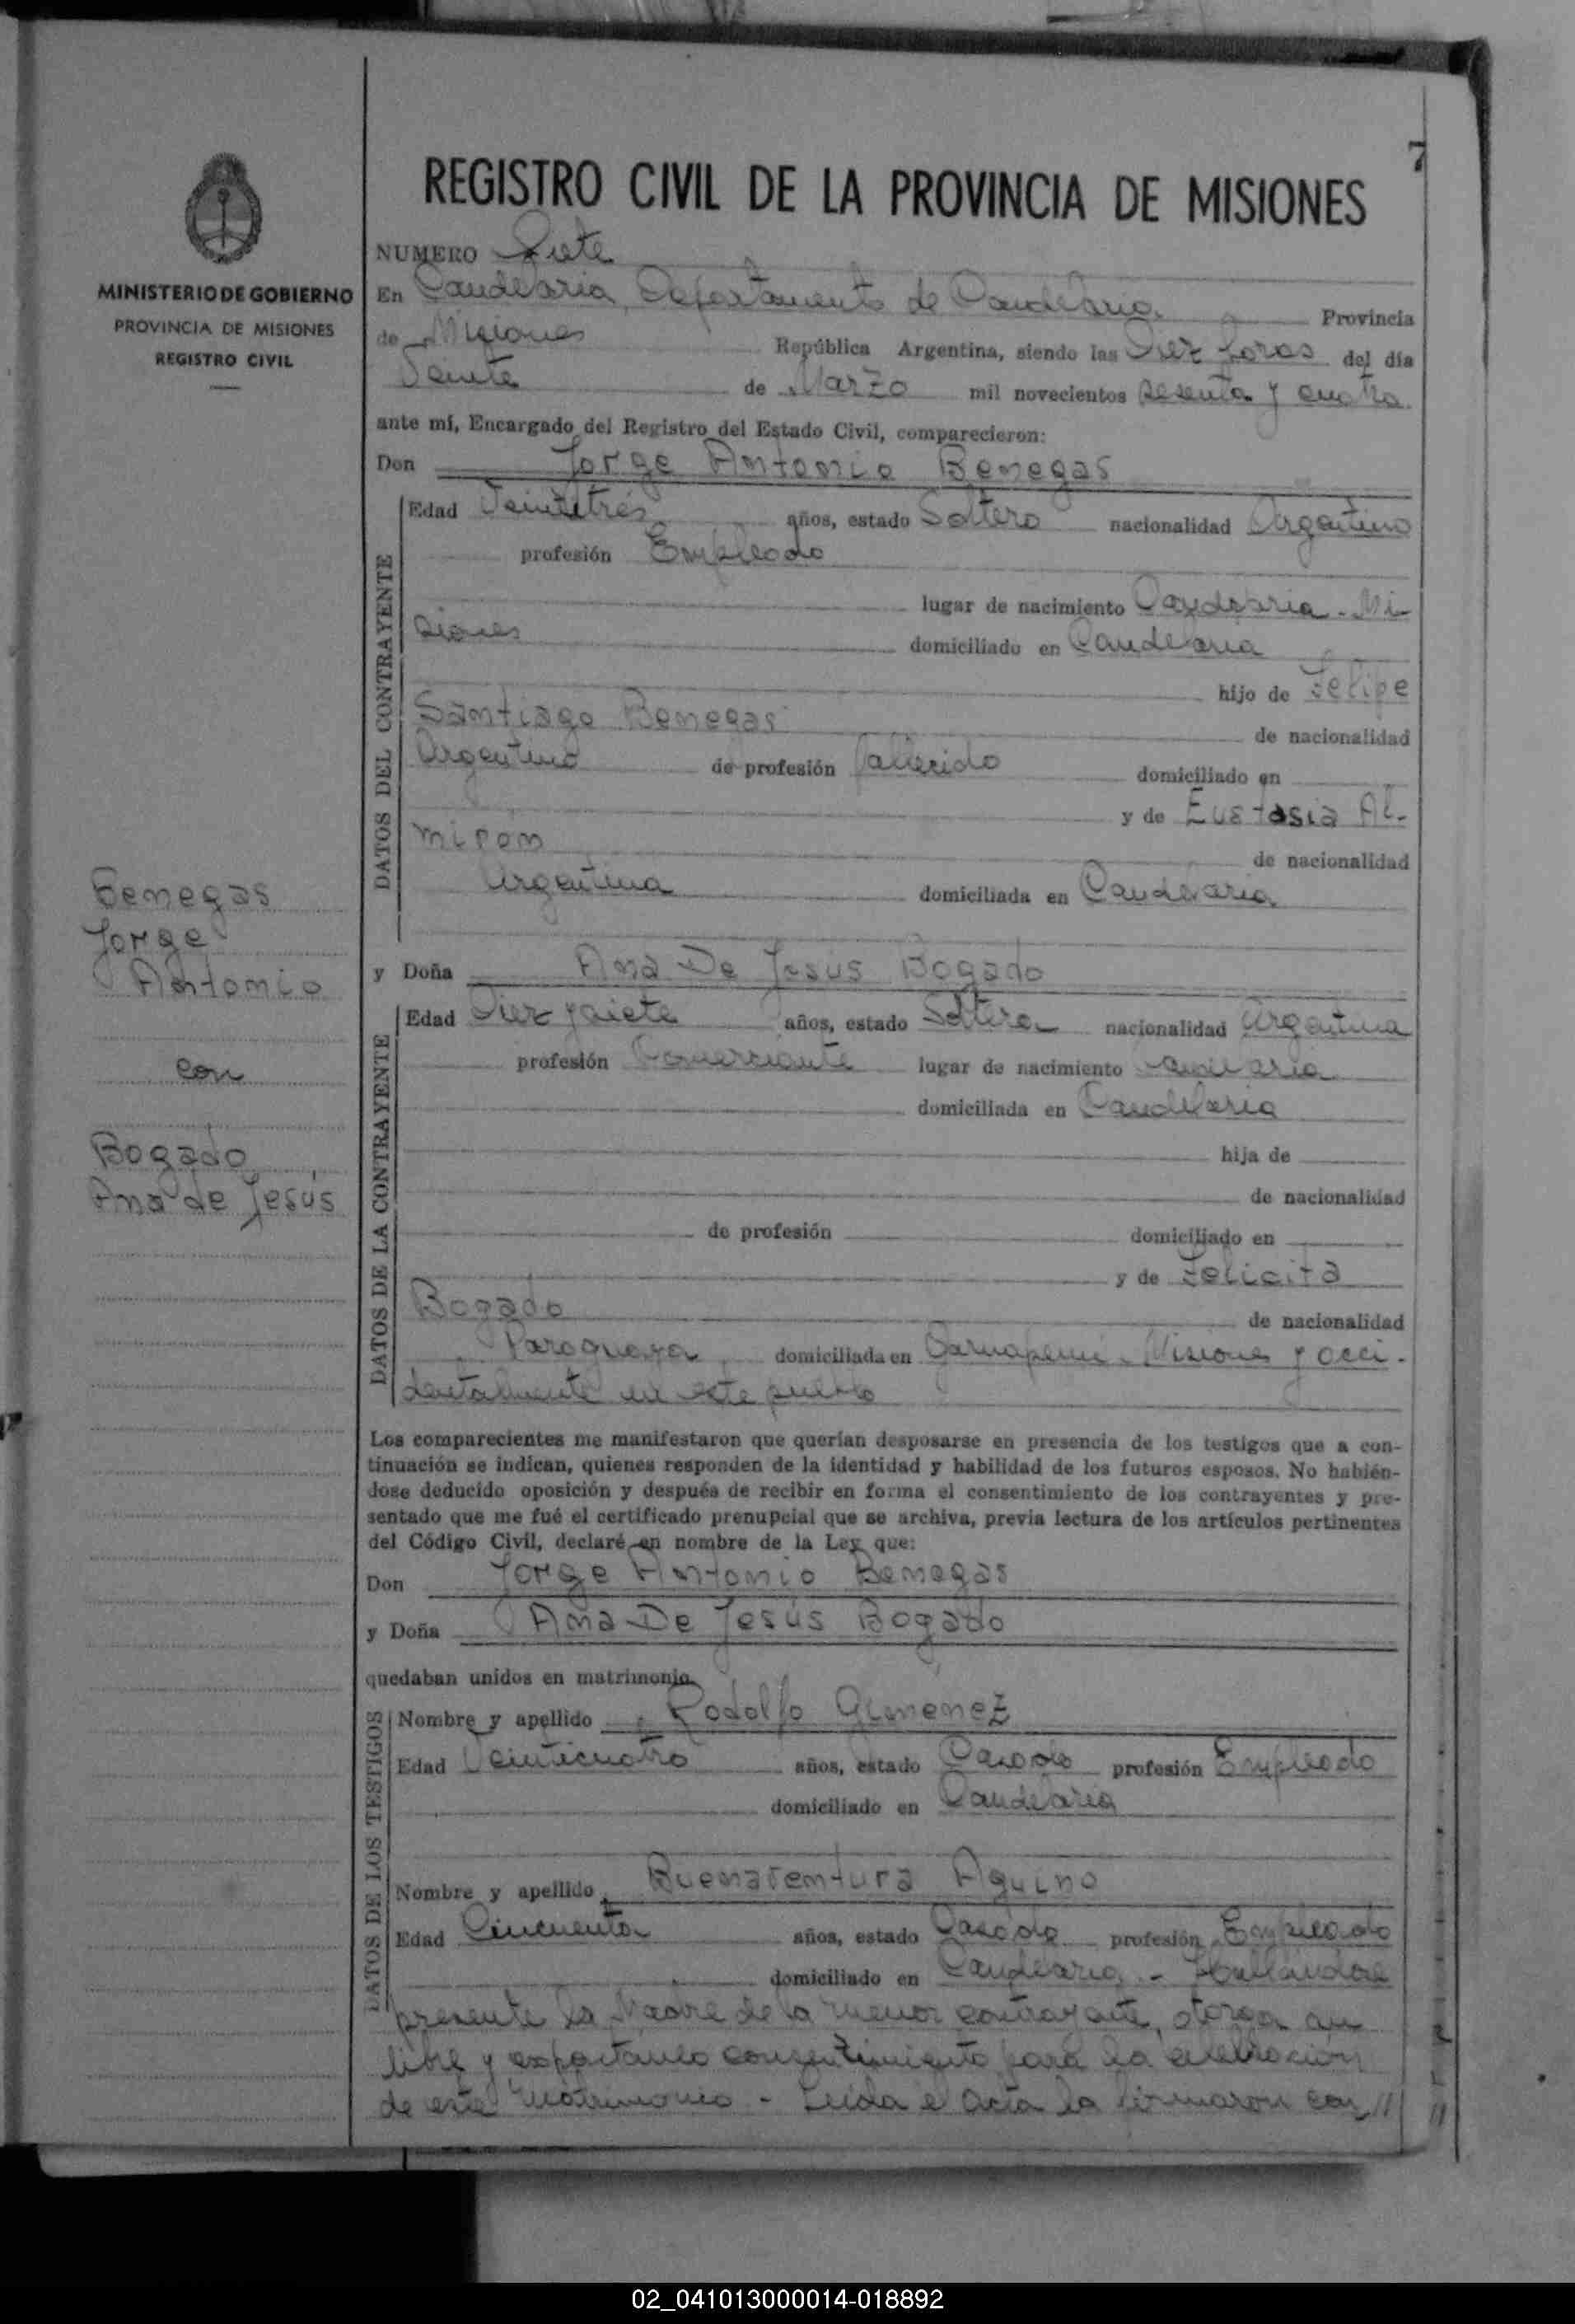 7
REGISTRO CIVIL DE LA PROVINCIA DE MISIONES
MINISTERIO DE GOBIERNO
PROVINCIA DE MISIONES
REGISTRO CIVIL
NUMERO Siete
En Candelaria, Departamento de Candelaria Provincia
de Misiones República Argentina, siendo las Diez horas del día
Veinte de Marzo mil novecientos sesenta y cuatro
ante mí, Encargado del Registro del Estado Civil, comparecieron:
Don Jorge Antonio Benegas
DATOS DEL CONTRAYENTE
Edad Veintitrés años, estado Soltero nacionalidad Argentino
profesión Empleado
lugar de nacimiento Candelaria - Mi-
siones domiciliado en Candelaria
hijo de Felipe
Santiago Benegas de nacionalidad
Argentino de profesión fallecido domiciliado en
y de Eustasia Al-
miron de nacionalidad
Argentina domiciliada en Candelaria
Benegas
Jorge
Antonio
con
Bogado
Ana de Jesús
y Doña Ana De Jesús Bogado
DATOS DE LA CONTRAYENTE
Edad Diez y siete años, estado Soltera nacionalidad Argentina
profesión Comerciante lugar de nacimiento Candelaria
domiciliada en Candelaria
hija de
de nacionalidad
de profesión domiciliado en
y de Felicita
Bogado de nacionalidad
Paraguaya domiciliada en Misiones y acci-
dentalmente en este pueblo
Los comparecientes me manifestaron que querían desposarse en presencia de los testigos que a con-
tinuación se indican, quienes responden de la identidad y habilidad de los futuros esposos. No habién-
dose deducido oposición y después de recibir en forma el consentimiento de los contrayentes y pre-
sentado que me fué el certificado prenupcial que se archiva, previa lectura de los artículos pertinentes
del Código Civil, declaré en nombre de la Ley que:
Don Jorge Antonio Benegas
y Doña Ana De Jesús Bogado
quedaban unidos en matrimonio.
DATOS DE LOS TESTIGOS
Nombre y apellido Rodolfo Gimenez
Edad Veinticuatro años, estado Casado profesión Empleado
domiciliado en Candelaria
Nombre y apellido Buenaventura Aguino
Edad Cincuenta años, estado Casado profesión Empleado
domiciliado en Candelaria - Hallandose
presente la Madre de la menor contrayente, otorga su
libre y espontáneo consentimiento para la celebracion
de este Matrimonio - Leida el Acta la firmaron con //
02_041013000014-018892